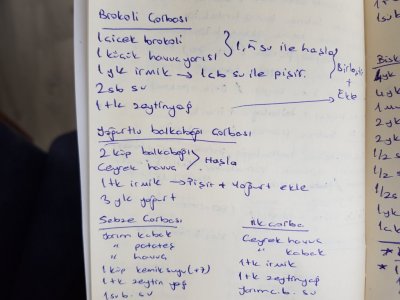 Brokoli Çorbası
1 çiçek brokoli
1 küçük havuç yarısı
su ile haşla
1 yk irmik → 1 çb su ile pişir.
Birleştir
+
Ekle
2 sb su
1 tk zeytinyağ
Yoğurtlu balkabağı Çorbası
2 küp balkabağı
Çeyrek havuç
Haşla
1 tk irmik → Pişir + Yoğurt ekle
3 yk yoğurt
Sebze Çorbası
Yarım kabak
" patates
" havuç
1 küp kemik suyu (+7)
1 tk zeytin yağ
1 su b. su
ilk çorba
Çeyrek havuç
" kabak
1 tk irmik
1 tk zeytinyağ
Yarım ç.b. su